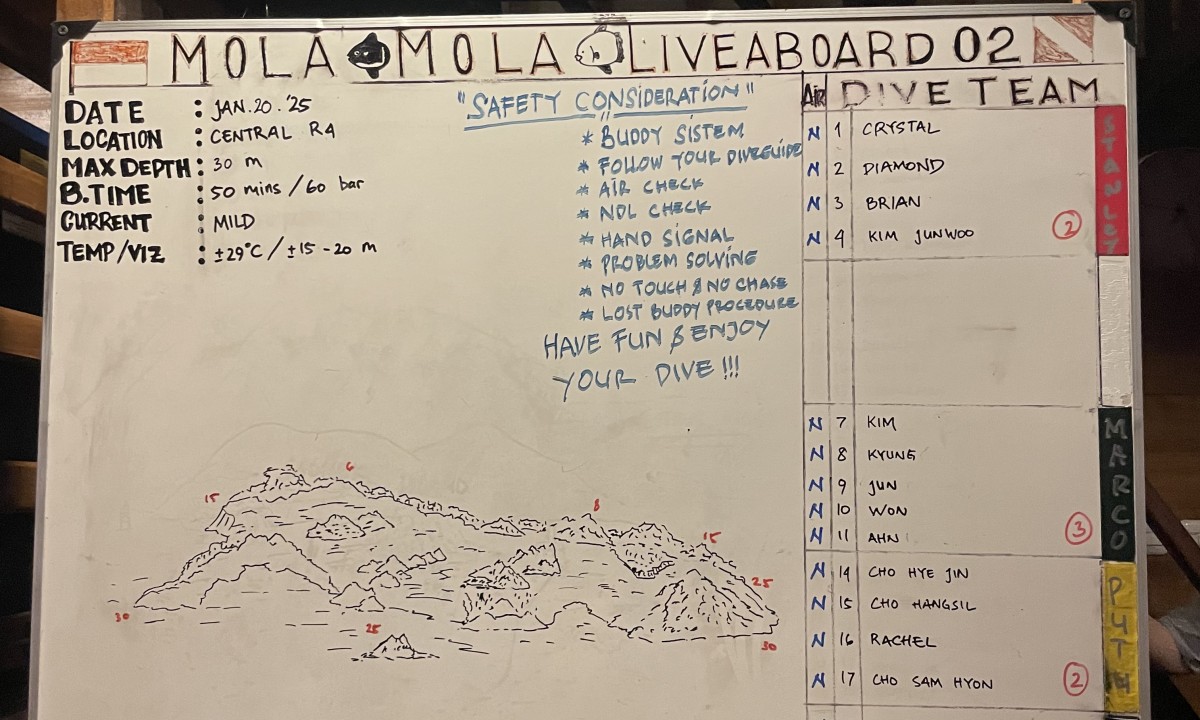 MOLA MOLA LIVEABOARD 02
DATE : JAN.20.'25
LOCATION : CENTRAL R4
MAX DEPTH : 30 m
B.TIME : 50 mins / 60 bar
CURRENT : MILD
TEMP/VIZ : ±29°C / ±15-20 m
"SAFETY CONSIDERATION"
* BUDDY SISTEM
* FOLLOW YOUR DIVEGUIDE
* AIR CHECK
* NDL CHECK
* HAND SIGNAL
* PROBLEM SOLVING
* NO TOUCH & NO CHASE
* LOST BUDDY PROCEDURE
HAVE FUN & ENJOY
YOUR DIVE !!!
6
15
8
15
25
30
25
30
Air DIVE TEAM
N 1 CRYSTAL
N 2 DIAMOND
N 3 BRIAN
N 4 KIM JUNWOO
2
STANLEY
N 7 KIM
N 8 KYUNG
N 9 JUN
N 10 WON
N 11 AHN
3
MARCO
N 14 CHO HYE JIN
N 15 CHO HANGSIL
N 16 RACHEL
N 17 CHO SAM HYON
2